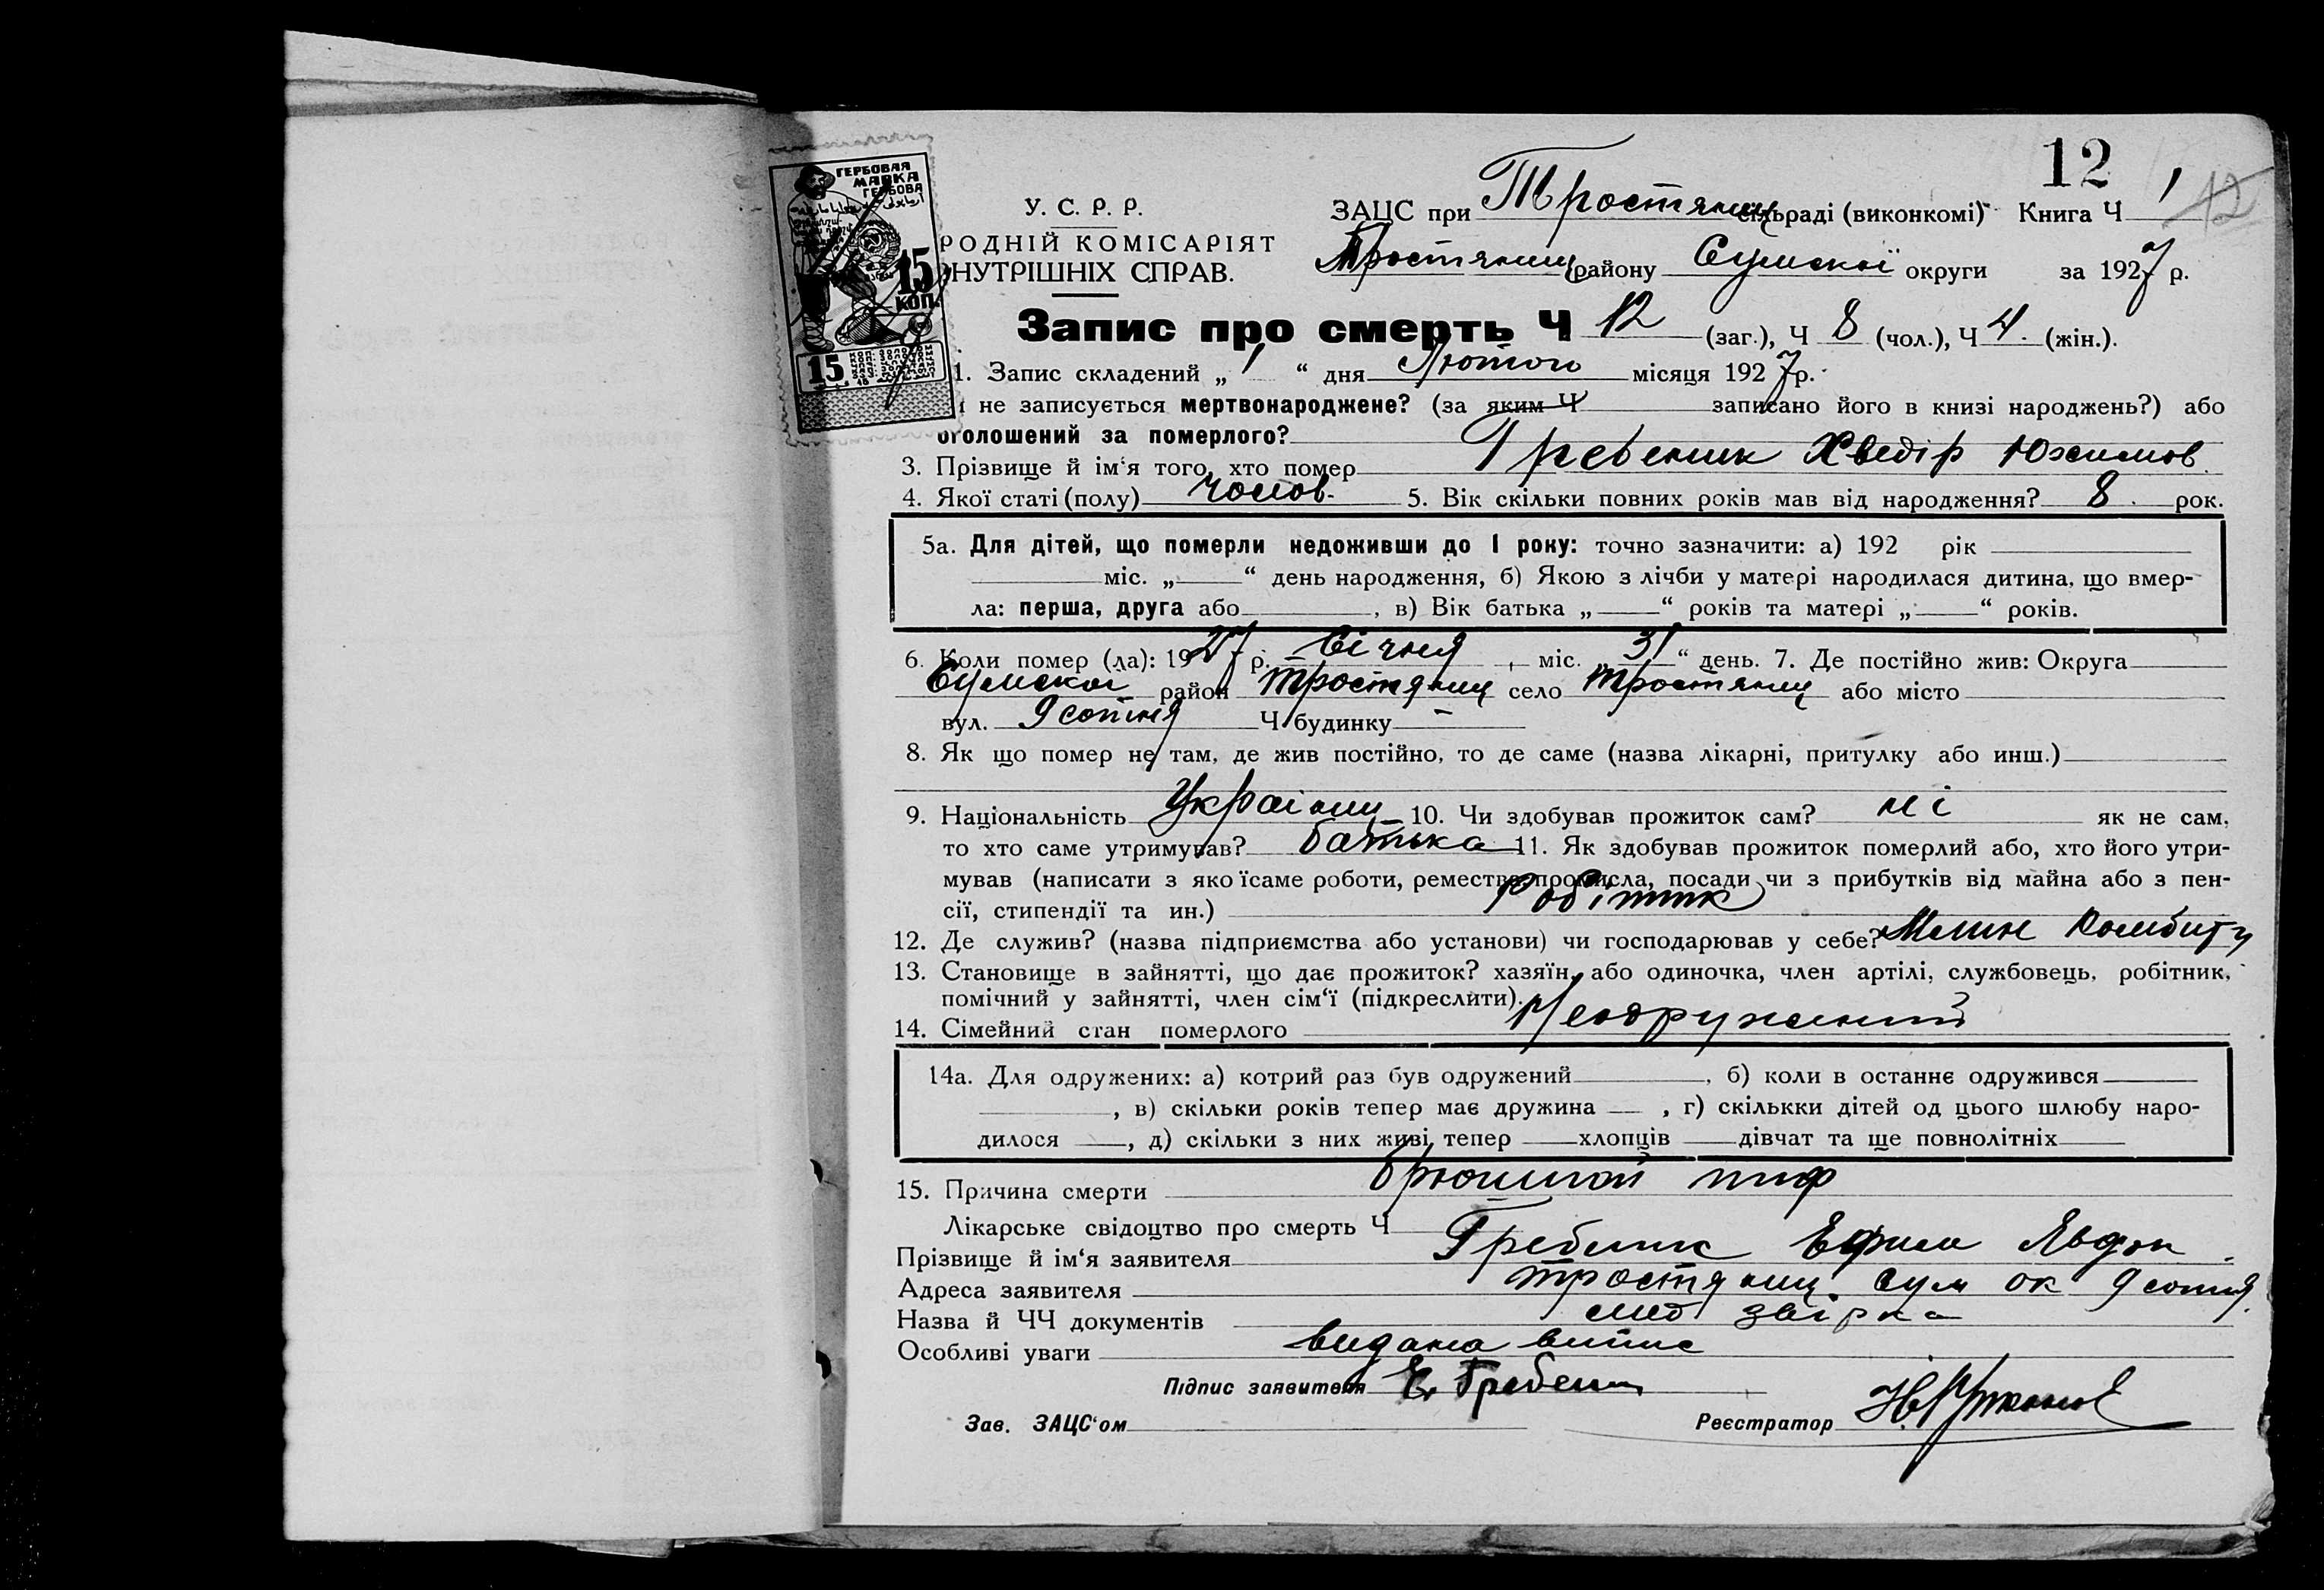 12
ГЕРБОВАЯ
МАРКА
ГЕРБОВА
15
КОП.
15
У. С. Р. Р.
РОДНІЙ КОМІСАРІЯТ
НУТРІШНІХ СПРАВ.
ЗАЦС при Тростянец сільраді (виконкомі) Книга Ч 1 12
Тростянец району Сумської округи за 1927 р.
Запис про смерть Ч 12 (заг.), Ч 8 (чол.), Ч 4. (жін.).
1. Запис складений „ 1 “ дня Лютого місяця 1927 р.
и не записується мертвонароджене? (за яким Ч записано його в книзі народжень?) або
оголошений за померлого?
3. Прізвище й ім‘я того, хто помер Гребеник Хведір Юхимов.
4. Якої статі (полу) чолов. 5. Вік скільки повних років мав від народження? 8 рок.
5а. Для дітей, що померли недоживши до 1 року: точно зазначити: а) 192 рік
міс. „ “ день народження, б) Якою з лічби у матері народилася дитина, що вмер-
ла: перша, друга або , в) Вік батька „ “ років та матері „ “ років.
6. Коли помер (ла): 1927 р. Січня міс. „ 31 “ день. 7. Де постійно жив: Округа
Сумског район Тростянец село Тростянец або місто
вул. 9 сотня Ч будинку –
8. Як що помер не там, де жив постійно, то де саме (назва лікарні, притулку або инш.)
9. Національність Украінец 10. Чи здобував прожиток сам? ні як не сам,
то хто саме утримував? батька 11. Як здобував прожиток померлий або, хто його утри-
мував (написати з якоїсаме роботи, ремества, промисла, посади чи з прибутків від майна або з пен-
сії, стипендії та ин.) Робітник
12. Де служив? (назва підприємства або установи) чи господарював у себе? Млин
13. Становище в зайнятті, що дає прожиток? хазяїн, або одиночка, член артілі, службовець, робітник,
помічний у зайнятті, член сім‘ї (підкреслити).
14. Сімейний стан померлого Неодружений
14а. Для одружених: а) котрий раз був одружений , б) коли в останнє одружився
, в) скільки років тепер має дружина , г) скількки дітей од цього шлюбу наро-
дилося , д) скільки з них живі тепер хлопців дівчат та ще повнолітніх
15. Причина смерти брюшной тиф
Лікарське свідоцтво про смерть Ч
Прізвище й ім‘я заявителя Гребеник Ефим Явдок
Адреса заявителя Тростянец Сум ок 9 сотня
Назва й ЧЧ документів звірка
Особливі уваги видана випис
Підпис заявителя Е. Гребеник
Зав. ЗАЦС‘ом Реєстратор